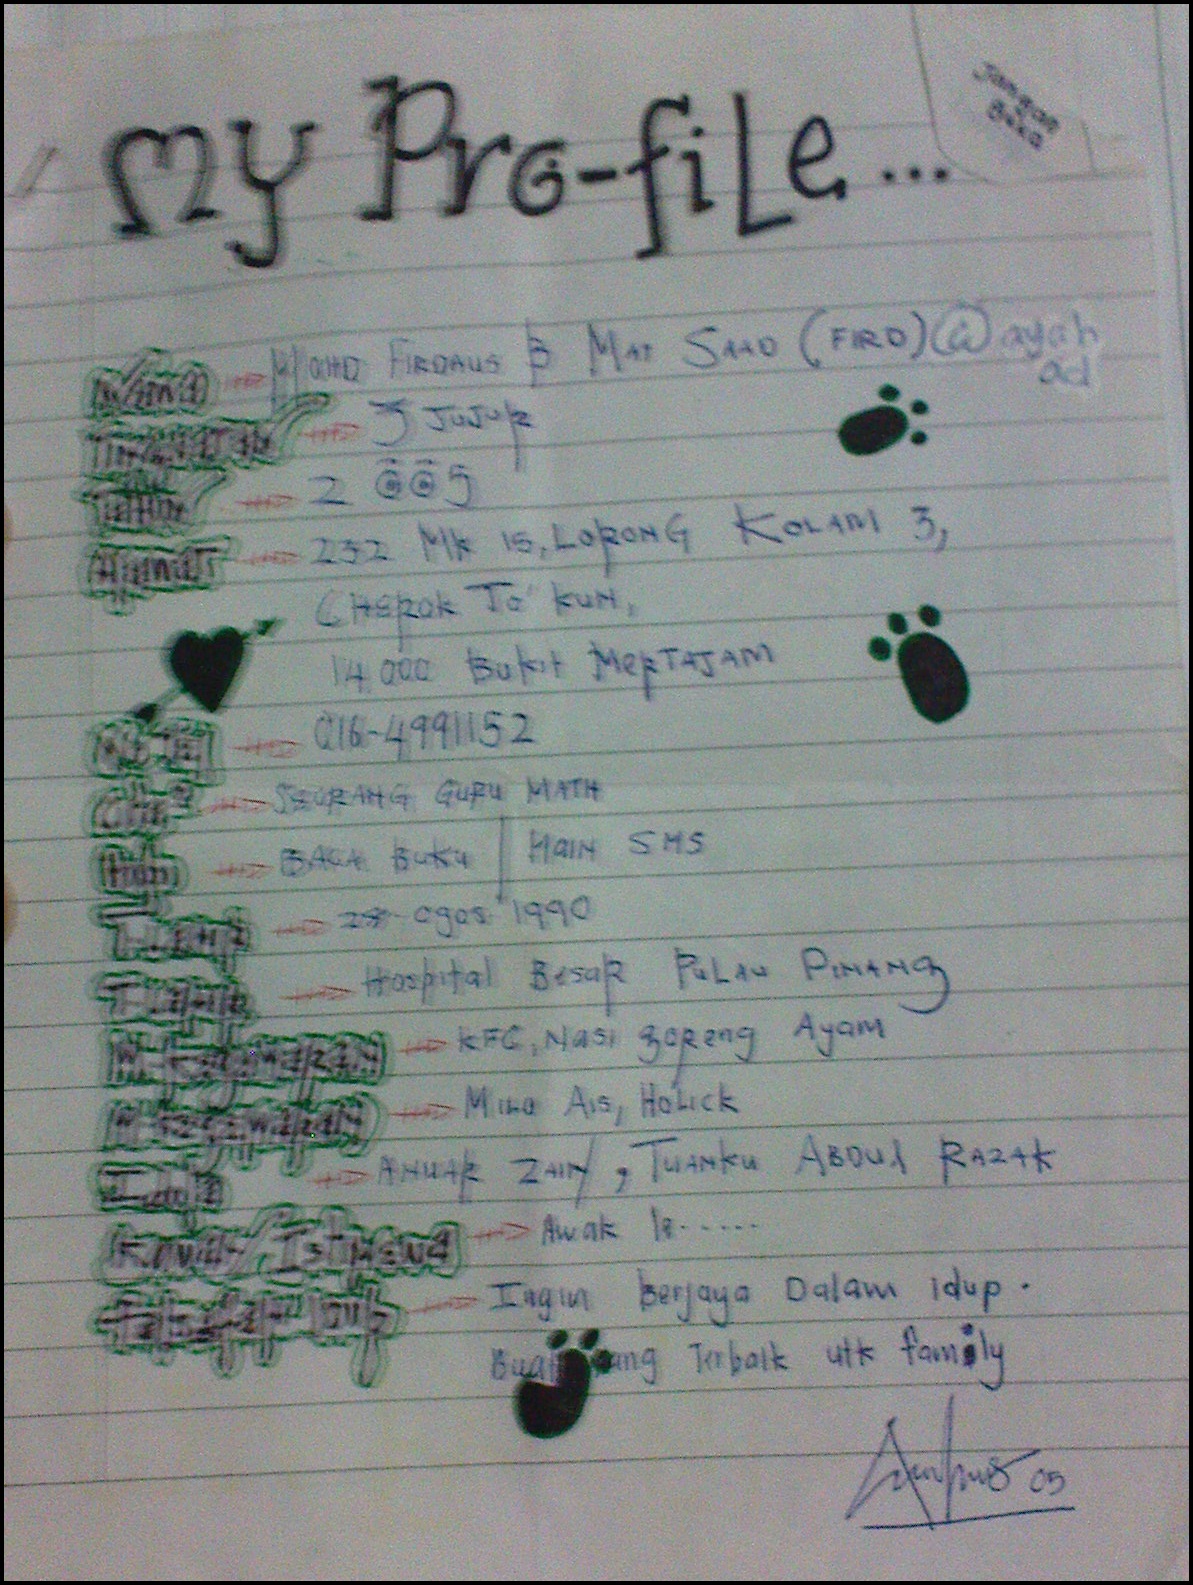 Jangan
Buka
My Pro-file...
Nama MOHD FIRDAUS B MAT SAAD (FIRD) @ ayah
ad
Tingkatan 3 JUJUR
Tahun 2005
Alamat 232 MK 15, LORONG KOLAM 3,
CHEROK TO' KUN,
14000 BUKIT MERTAJAM
No Tel 016-4991152
Cita2 SEORANG GURU MATH
Hobi BACA BUKU / MAIN SMS
T. Lahir Ogos 1990
Hospital Besar PULAU PINANG
M. Kegemaran KFC, Nasi goreng Ayam
M. Kegemaran MILO AIS, HOLICK
Idola ANUAR ZAIN, TUANKU ABDUL RAZAK
Kawan Istimewa Awak le......
Ingin Berjaya Dalam idup.
Buat yang Terbaik utk family
05